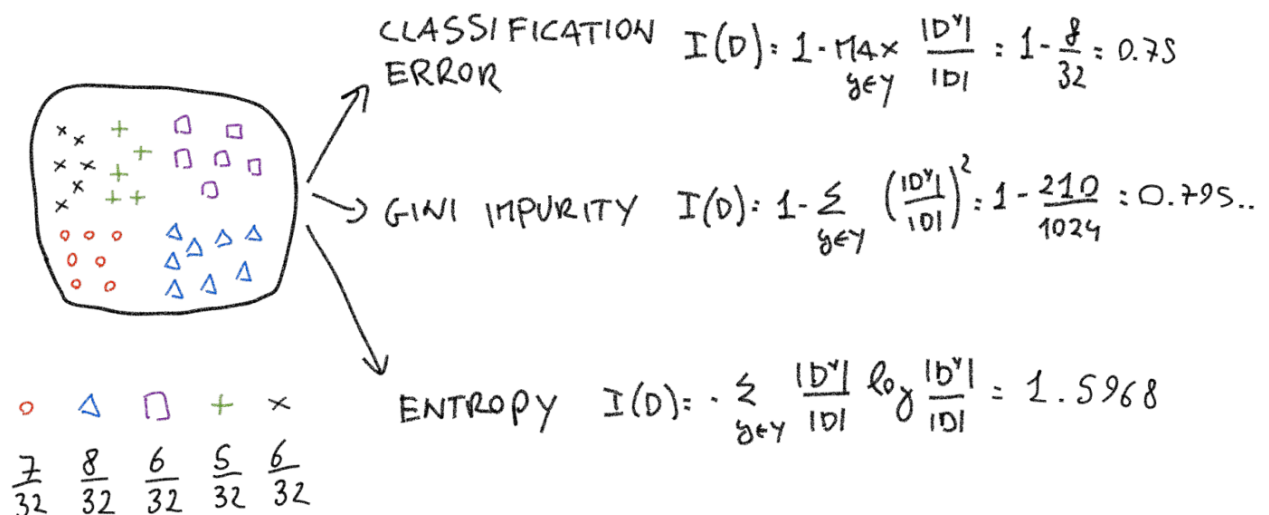 CLASSIFICATION ERROR I(D): 1 - MAX y∈Y |Dʸ| / |D| : 1 - 8/32 : 0.75
GINI IMPURITY I(D): 1 - Σ y∈Y (|Dʸ| / |D|)² : 1 - 210/1024 : 0.795..
ENTROPY I(D): - Σ y∈Y |Dʸ| / |D| log |Dʸ| / |D| = 1.5968
7/32 8/32 6/32 5/32 6/32